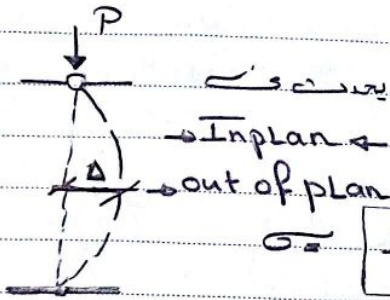 P
→ Inplan ←
Δ → out of plan
σ =